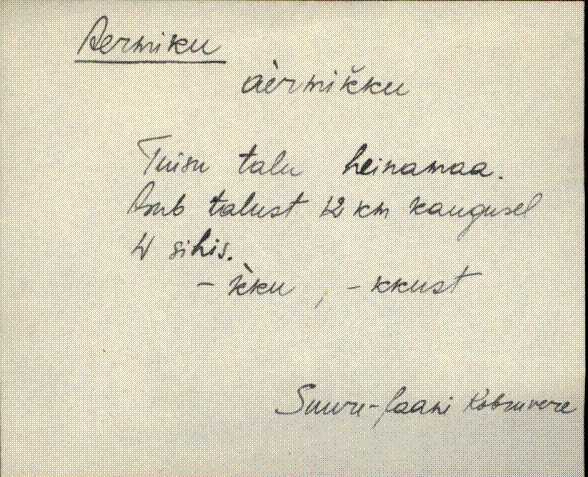 Aermiku
àermiǩku
Tuisu talu heinamaa.
Asub talust 12 km kaugusel
W sihis.
- k̀ku, - kkust
Suure-Jaani Kobruvere